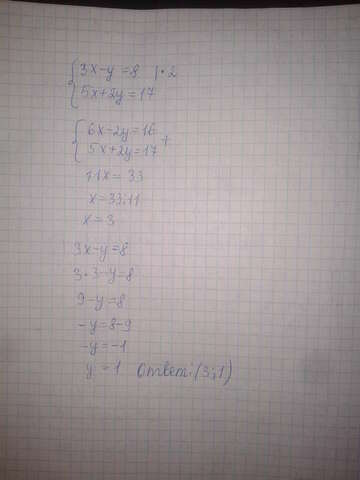 {3x-y=8 |·2
5x+2y=17
{6x-2y=16
5x+2y=17 +
11x=33
x=33:11
x=3
3x-y=8
3·3-y=8
9-y=8
-y=8-9
-y=-1
y=1 Ответ: (3;1)